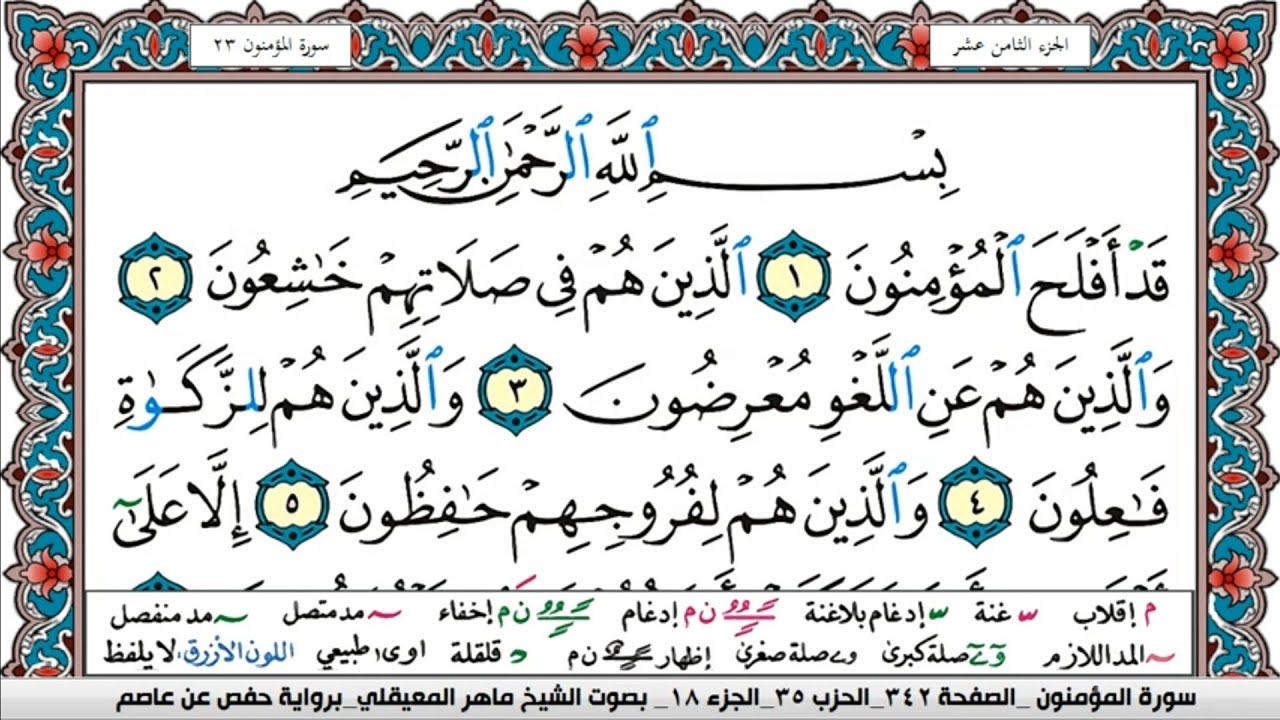 الجزء الثامن عشر
سورة المؤمنون ٢٣
بِسْمِ ٱللَّهِ ٱلرَّحْمَٰنِ ٱلرَّحِيمِ
قَدْ أَفْلَحَ ٱلْمُؤْمِنُونَ ١ ٱلَّذِينَ هُمْ فِى صَلَاتِهِمْ خَٰشِعُونَ ٢
وَٱلَّذِينَ هُمْ عَنِ ٱللَّغْوِ مُعْرِضُونَ ٣ وَٱلَّذِينَ هُمْ لِلزَّكَوٰةِ
فَٰعِلُونَ ٤ وَٱلَّذِينَ هُمْ لِفُرُوجِهِمْ حَٰفِظُونَ ٥ إِلَّا عَلَىٰٓ
م إقلاب غنة إدغام بلاغنة ن م إدغام ن م إخفاء مد متصل مد منفصل
المد اللازم صلة كبرى صلة صغرى إظهار ن م قلقلة اوى طبيعي اللون الأزرق، لا يلفظ
سورة المؤمنون _الصفحة ٣٤٢_الحزب ٣٥_الجزء ١٨_ بصوت الشيخ ماهر المعيقلي_برواية حفص عن عاصم